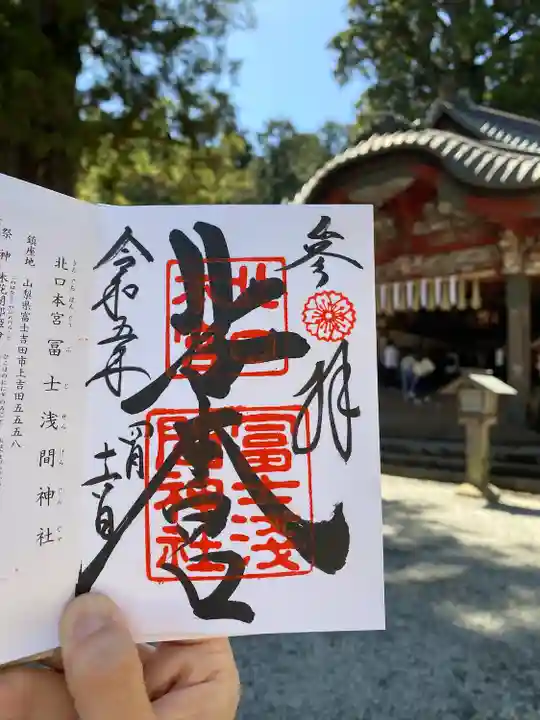 參拜
北口本宮
北口
本宮
冨士浅
間神社
令和五年
北口本宮冨士浅間神社
鎮座地 山梨県富士吉田市上吉田五五五八
祭神 木花開耶姫命